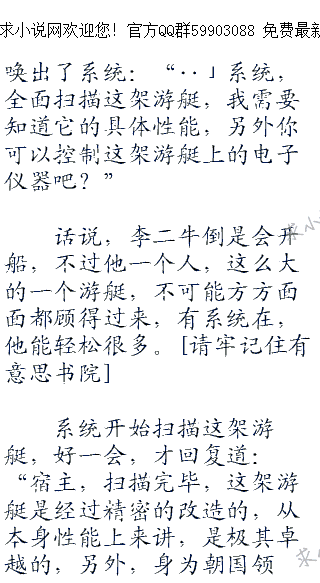 求小说网欢迎您! 官方QQ群59903088 免费最新
唤出了系统：“··」系统，
全面扫描这架游艇，我需要
知道它的具体性能，另外你
可以控制这架游艇上的电子
仪器吧？”
话说，李二牛倒是会开
船，不过他一个人，这么大
的一个游艇，不可能方方面
面都顾得过来，有系统在，
他能轻松很多。[请牢记住有
意思书院]
系统开始扫描这架游
艇，好一会，才回复道：
“宿主，扫描完毕，这架游
艇是经过精密的改造的，从
本身性能上来讲，是极其卓
越的，另外，身为朝国领